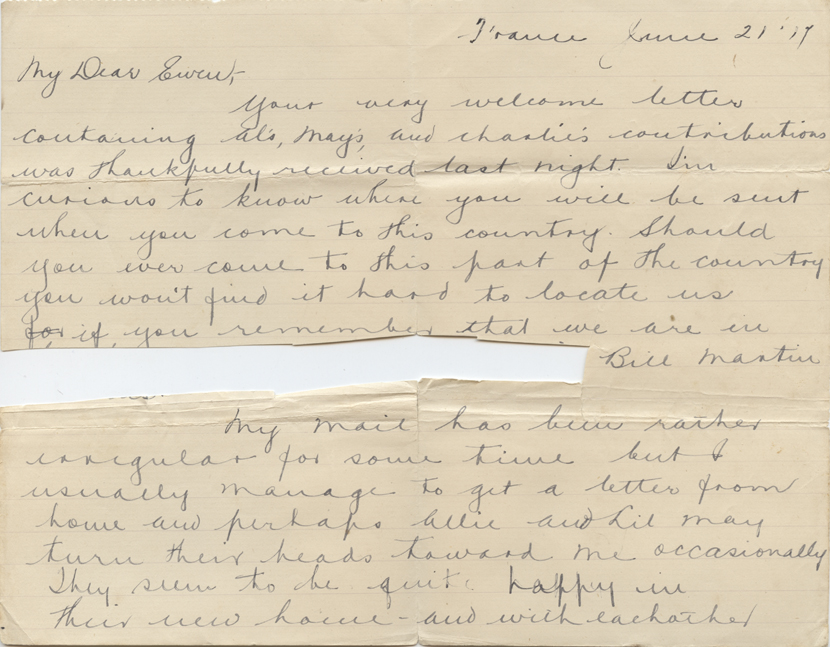 France June 21 '17
My Dear Ewen,-
Your very welcome letter
containing al's, may's, and charlie's contributions
was thankfully received last night. I'm
curious to know where you will be sent
when you come to this country. Should
you ever come to this part of the country
you won't find it hard to locate us
for, if, you remember that we are in
Bill Martin
My mail has been rather
irregular for some time but I
usually manage to get a letter from
home and perhaps Allie and Lil may
turn their heads toward me occasionally
They seem to be quite happy in
their new home - and with eachother